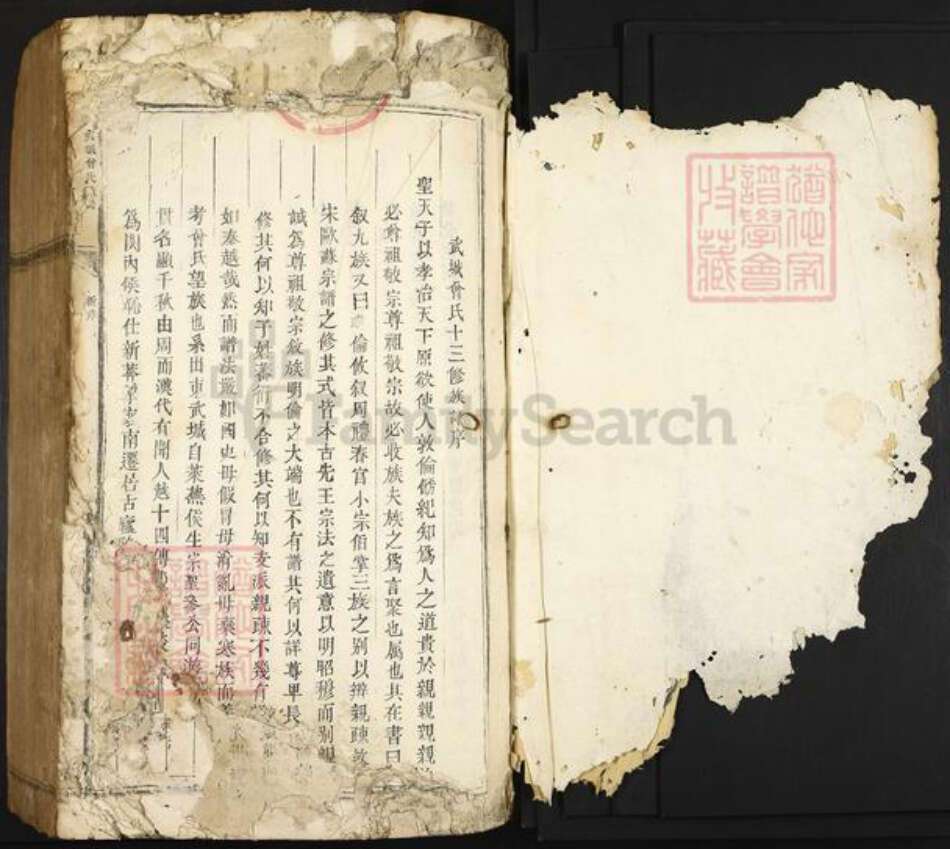 武城曾氏十三修族譜序
聖天子以孝治天下原欲使人敦倫飭紀知爲人之道貴於親親親親
必尊祖敬宗尊祖敬宗故必收族夫族之爲言聚也屬也其在書曰
叙九族又曰 倫攸叙周禮春官小宗伯掌三族之别以辨親疎故
宋歐蘇宗譜之修其式皆本古先王宗法之遺意以明昭穆而别親
誠爲尊祖敬宗敘族明倫之大端也不有譜其何以詳尊卑長
修其何以知子姓蕃衍不合修其何以知支派親疎不幾有
如秦越哉然而譜法嚴如國史毋假冒毋淆亂毋棄寒族而
考曾氏望族也系出東武城自萊蕪侯生宗聖參公同游
世名顯千秋由周而漢代有聞人越十四傳
爲関内侯恥仕新莽 南遷居古廬
武城曾氏
FamilySearch